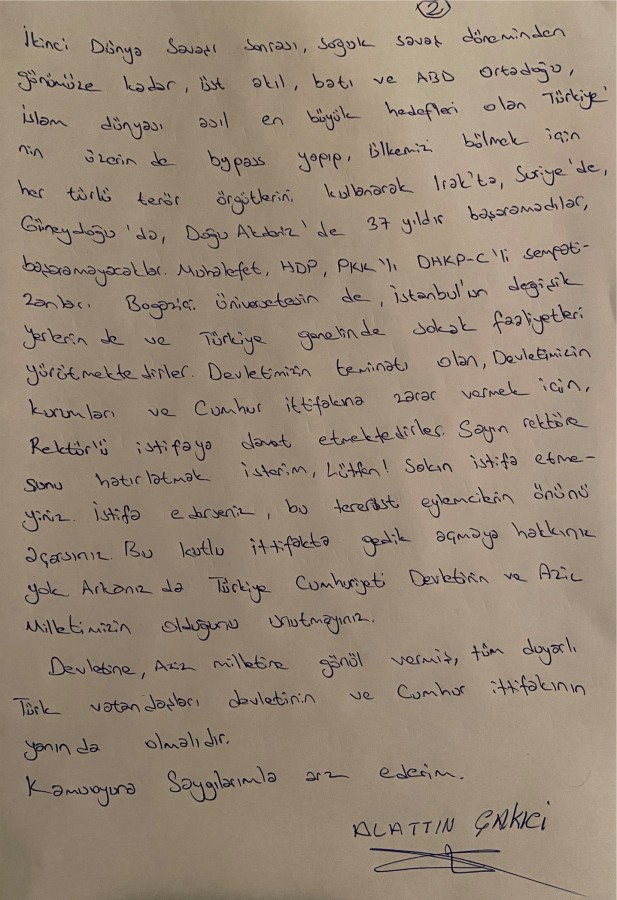 2
İkinci Dünya Savaşı sonrası, soğuk savaş döneminden
günümüze kadar, üst akıl, batı ve ABD Ortadoğu,
İslam dünyası asıl en büyük hedefleri olan Türkiye'
nin üzerin de bypass yapıp, ülkemizi bölmek için
her türlü terör örgütlerini kullanarak Irak'ta, Suriye'de,
Güneydoğu'da, Doğu Akdeniz'de 37 yıldır başaramadılar,
başaramayacaklar. Muhalefet, HDP, PKK'lı DHKP-C'li sempati-
zanları. Boğaziçi Üniversitesin de, İstanbul'un değişik
yerlerin de ve Türkiye genelinde sokak faaliyetleri
yürütmektedirler. Devletimizin teminatı olan, Devletimizin
kurumları ve Cumhur ittifakına zarar vermek için,
Rektör'ü istifaya davet etmektedirler. Sayın rektöre
şunu hatırlatmak isterim, Lütfen! Sakın istifa etme-
yiniz. İstifa ederseniz, bu terörist eylemcilerin önünü
açarsınız. Bu kutlu ittifakta gedik açmaya hakkınız
yok Arkanız da Türkiye Cumhuriyeti Devletinin ve Aziz
Milletimizin olduğunu unutmayınız.
Devletine, Aziz milletine gönül vermiş, tüm duyarlı
Türk vatandaşları devletinin ve Cumhur ittifakının
yanın da olmalıdır.
Kamuoyuna Saygılarımla arz ederim.
ALATTİN ÇAKICI